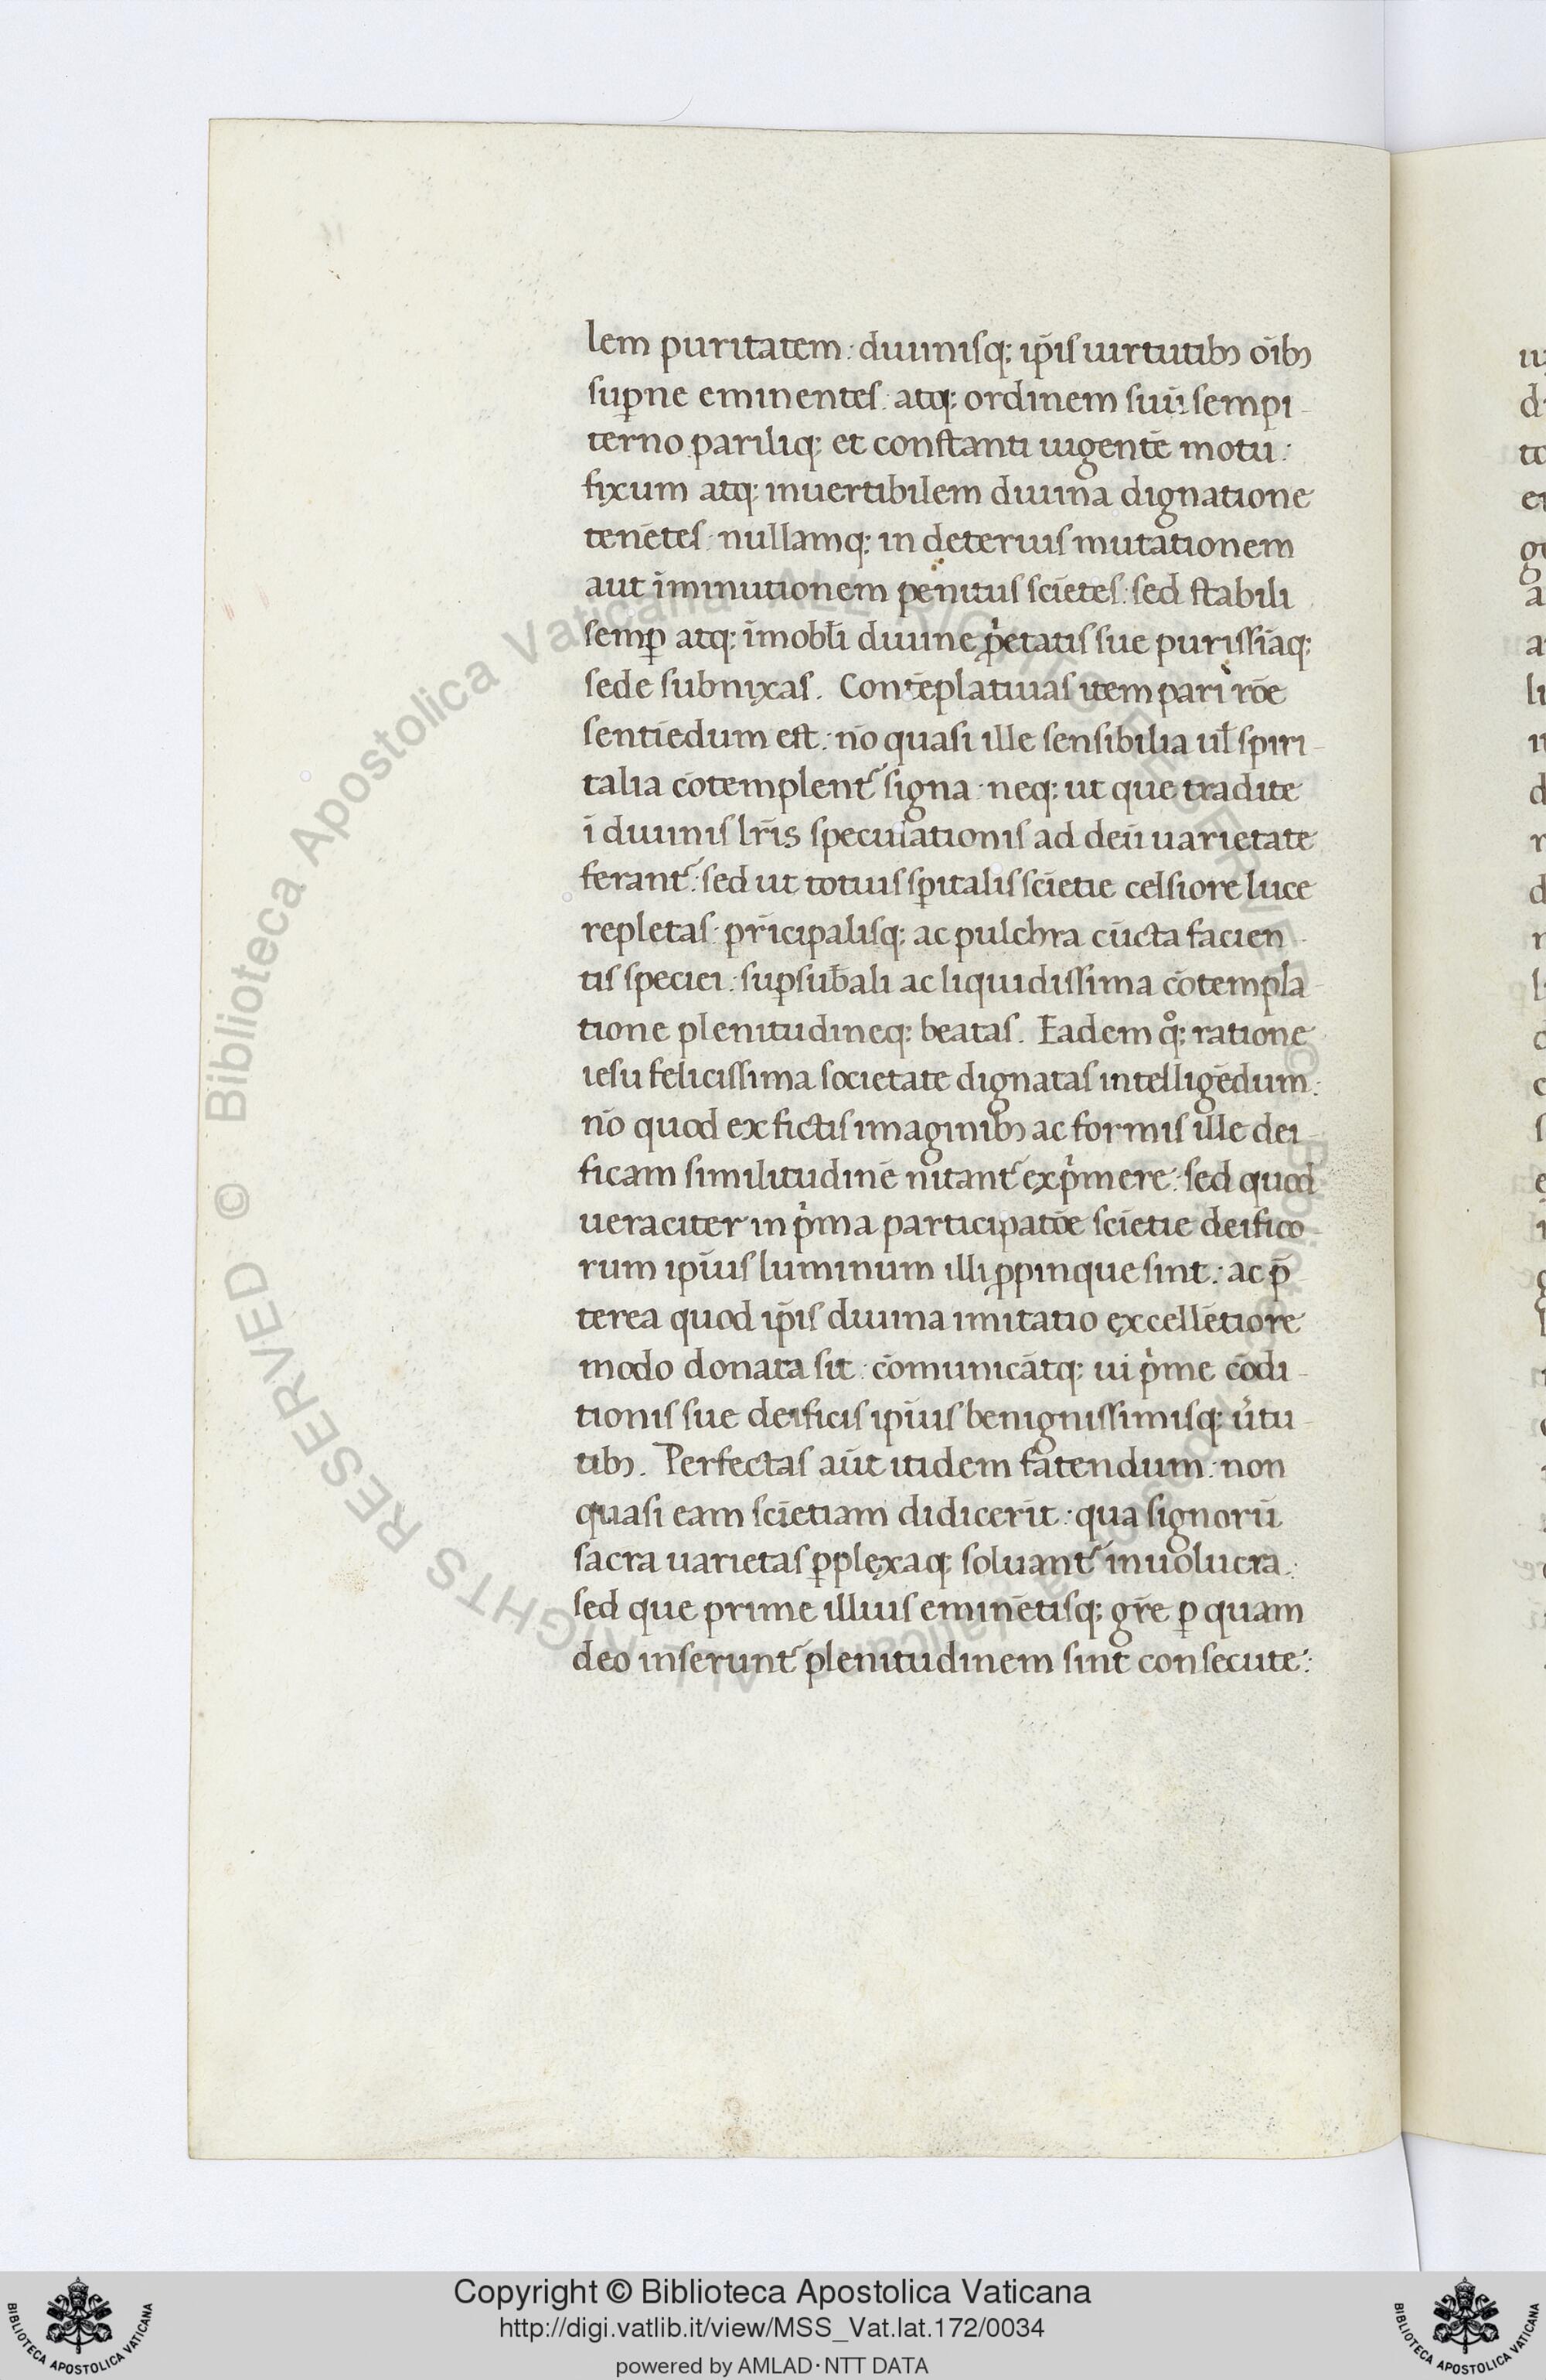 lem puritatem: diuinisq; ip̄is uirtutibꝫ oībꝫ
suꝑne eminentes. atq; ordinem suū sempi-
terno pariliq; et constanti uigentē motu:
fixum atq; inuertibilem diuina dignatione
tenētes: nullamq; in deterius mutationem
aut īminutionem penitus sciētes: sed stabili
semꝑ atq; īmobłi diuine ꝓ̍etatis sue purissīaq;
sede subnixas. Contēplatiuas item pari rōe
sentiēdum est: nō quasi ille sensibilia ul̄ spiri-
talia cōtemplentᷣ signa: neq; ut que tradite
ī diuinis lr̄is speculationis ad deū uarietate
ferantᷣ: sed ut totius sp̄italis sciētie celsiore luce
repletas: prīcipalisq; ac pulchra cūcta facien-
tis speciei: suꝑsub̄ali ac liquidissima cōtempla-
tione plenitudineq; beatas. Eadem qͦ; ratione
iesu felicissima societate dignatas intelligēdum:
nō quod ex fictis imaginibꝫ ac formis ille dei-
ficam similitudinē nitantᷣ exp̍mere: sed quod
ueraciter in p̍ma participatōe sciētie deifico-
rum ipīus luminum illi ꝓpinque sint: ac p̄-
terea quod ip̄is diuina imitatio excellētiore
modo donata sit: cōmunicātq; ui p̍me cōdi-
tionis sue deificis ipīus benignissimisq; u̍tu-
tibꝫ. Perfectas aūt itidem fatendum: non
quasi eam sciētiam didicerīt: qua signorū
sacra uarietas ꝑplexaq; soluantᷣ inuolucra:
sed que prime illius eminētisq; gr̄e ꝑ quam
deo inseruntᷣ plenitudinem sint consecute:
Copyright © Biblioteca Apostolica Vaticana
http://digi.vatlib.it/view/MSS_Vat.lat.172/0034
powered by AMLAD·NTT DATA
BIBLIOTECA APOSTOLICA VATICANA
BIBLIOTECA APOSTOLICA VATICANA
© Biblioteca Apostolica Vaticana ALL RIGHTS RESERVED © Biblioteca Apostolica Vaticana ALL RIGHTS RESERVED